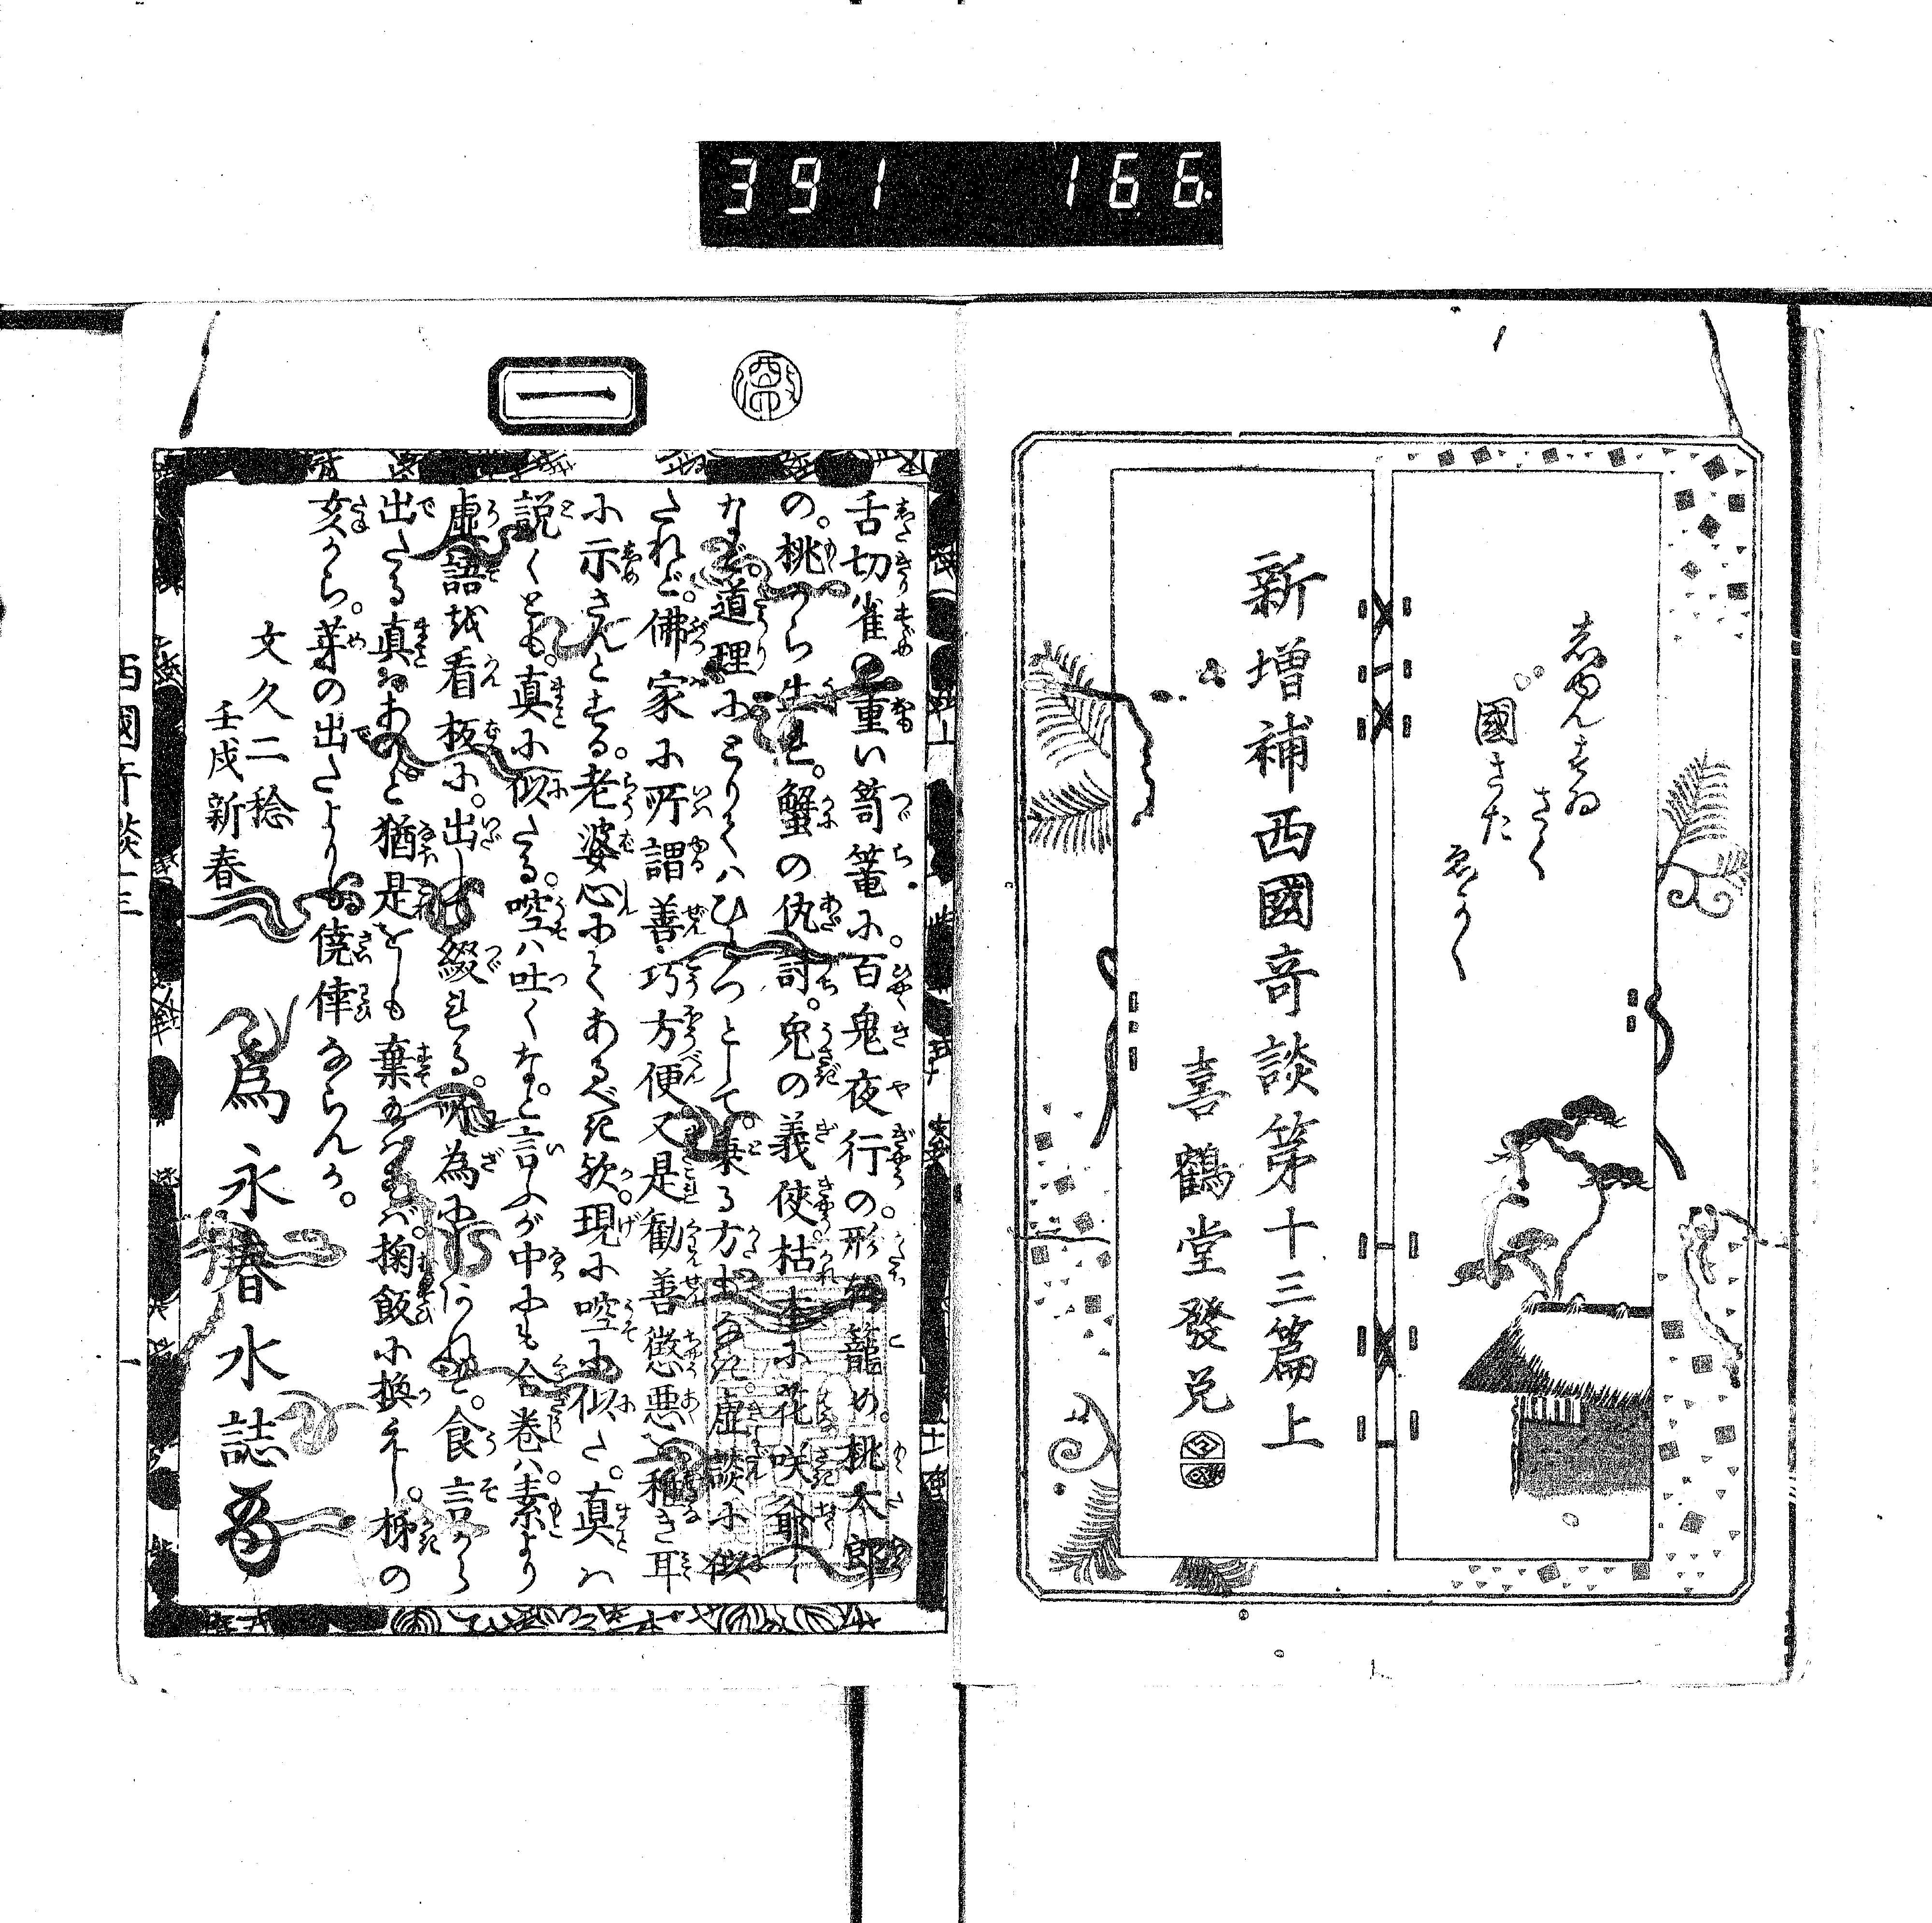 391 166.
志ゆんすゐ
さく
國さた
ゑかく
新増補西國奇談第十三篇上
喜鶴堂發兌
一
舌切雀の重い笥篭に。百鬼夜行の形を籠め。桃太郎
の。桃から生れ。蟹の仇討。兎の義侠。枯木に花咲爺
など。道理にとりてハひとつとして。乗る方もなき虚談に似
たれど。佛家に所謂善巧方便又是勧善懲悪を稚き耳
に示さんとする。老婆心にてあるべき欤。現に啌に似た。真ハ
説くとも。真に似たる。啌ハ吐くな。と言ふが中にも合巻ハ。素より
虚語を看板に。出して綴れる。所為にしあれど。食言から
出たる真もあれと猶是をしも棄玉ハずバ。掬飯に換ネし。柹の
亥から。芽の出たよりも僥倖ならんか。
文久二稔
壬戌新春
為永春水誌
西國奇談十三
一